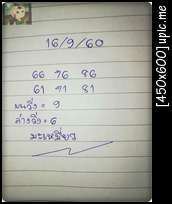 16/9/60
66 76 96
61 71 91
บนวิ่ง = 9
ล่างวิ่ง = 6
มะเหมี่ยว
[450x600] upic.me